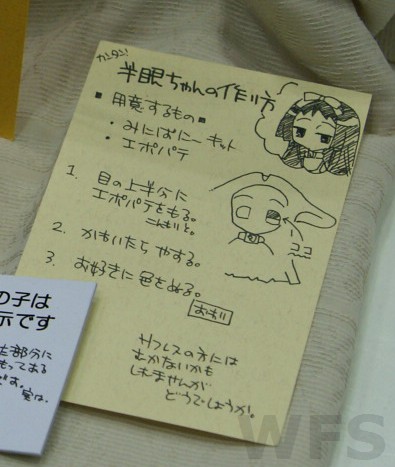 カンタン!
半眼ちゃんの作り方
■用意するもの■
・みにぱにーキット
・エポパテ
1. 目の上半分に
エポパテをもる。
こんもりと。
ココ
2. かわいたら やする。
3. お好きに色をぬる。
おわり
サフレスの方には
むかないかも
しれませんが
どうでしょうか。
の子は
示です
部分に
もってある
です。
実は、
WFS